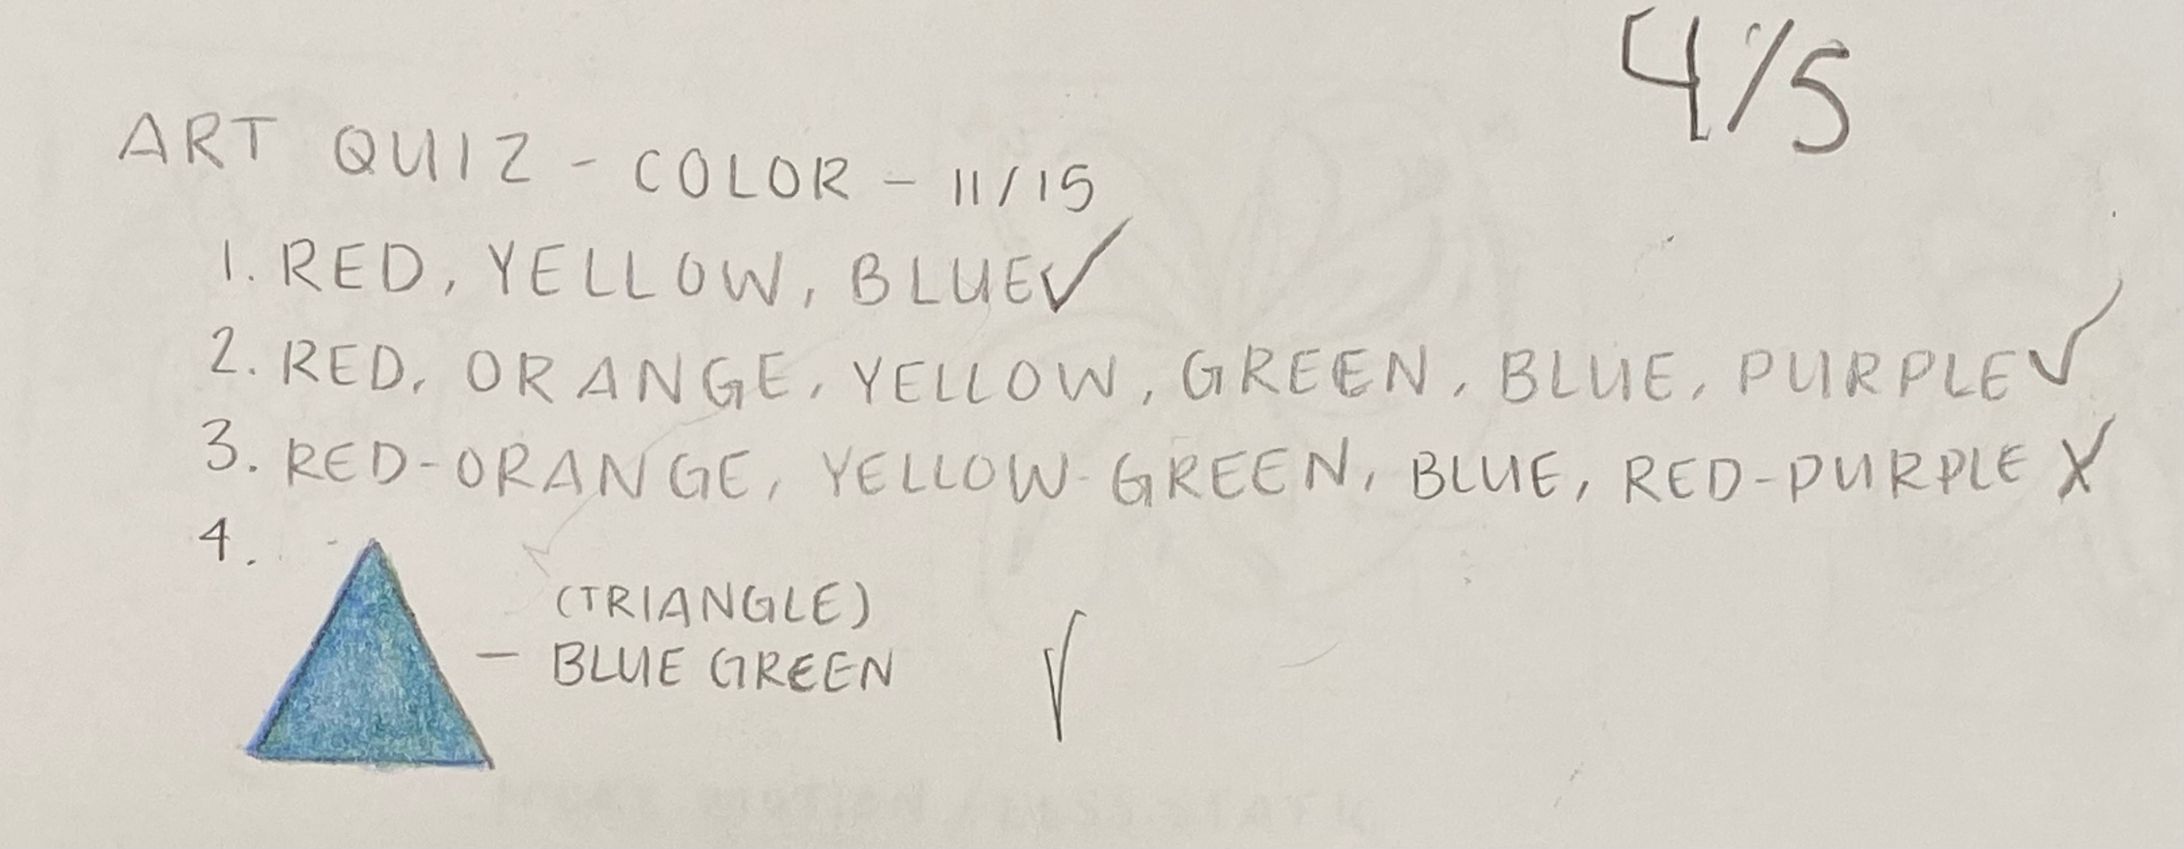 4/5
ART QUIZ - COLOR - 11/15
1. RED, YELLOW, BLUE✓
2. RED, ORANGE, YELLOW, GREEN, BLUE, PURPLE✓
3. RED-ORANGE, YELLOW-GREEN, BLUE, RED-PURPLE X
4.
(TRIANGLE)
- BLUE GREEN ✓